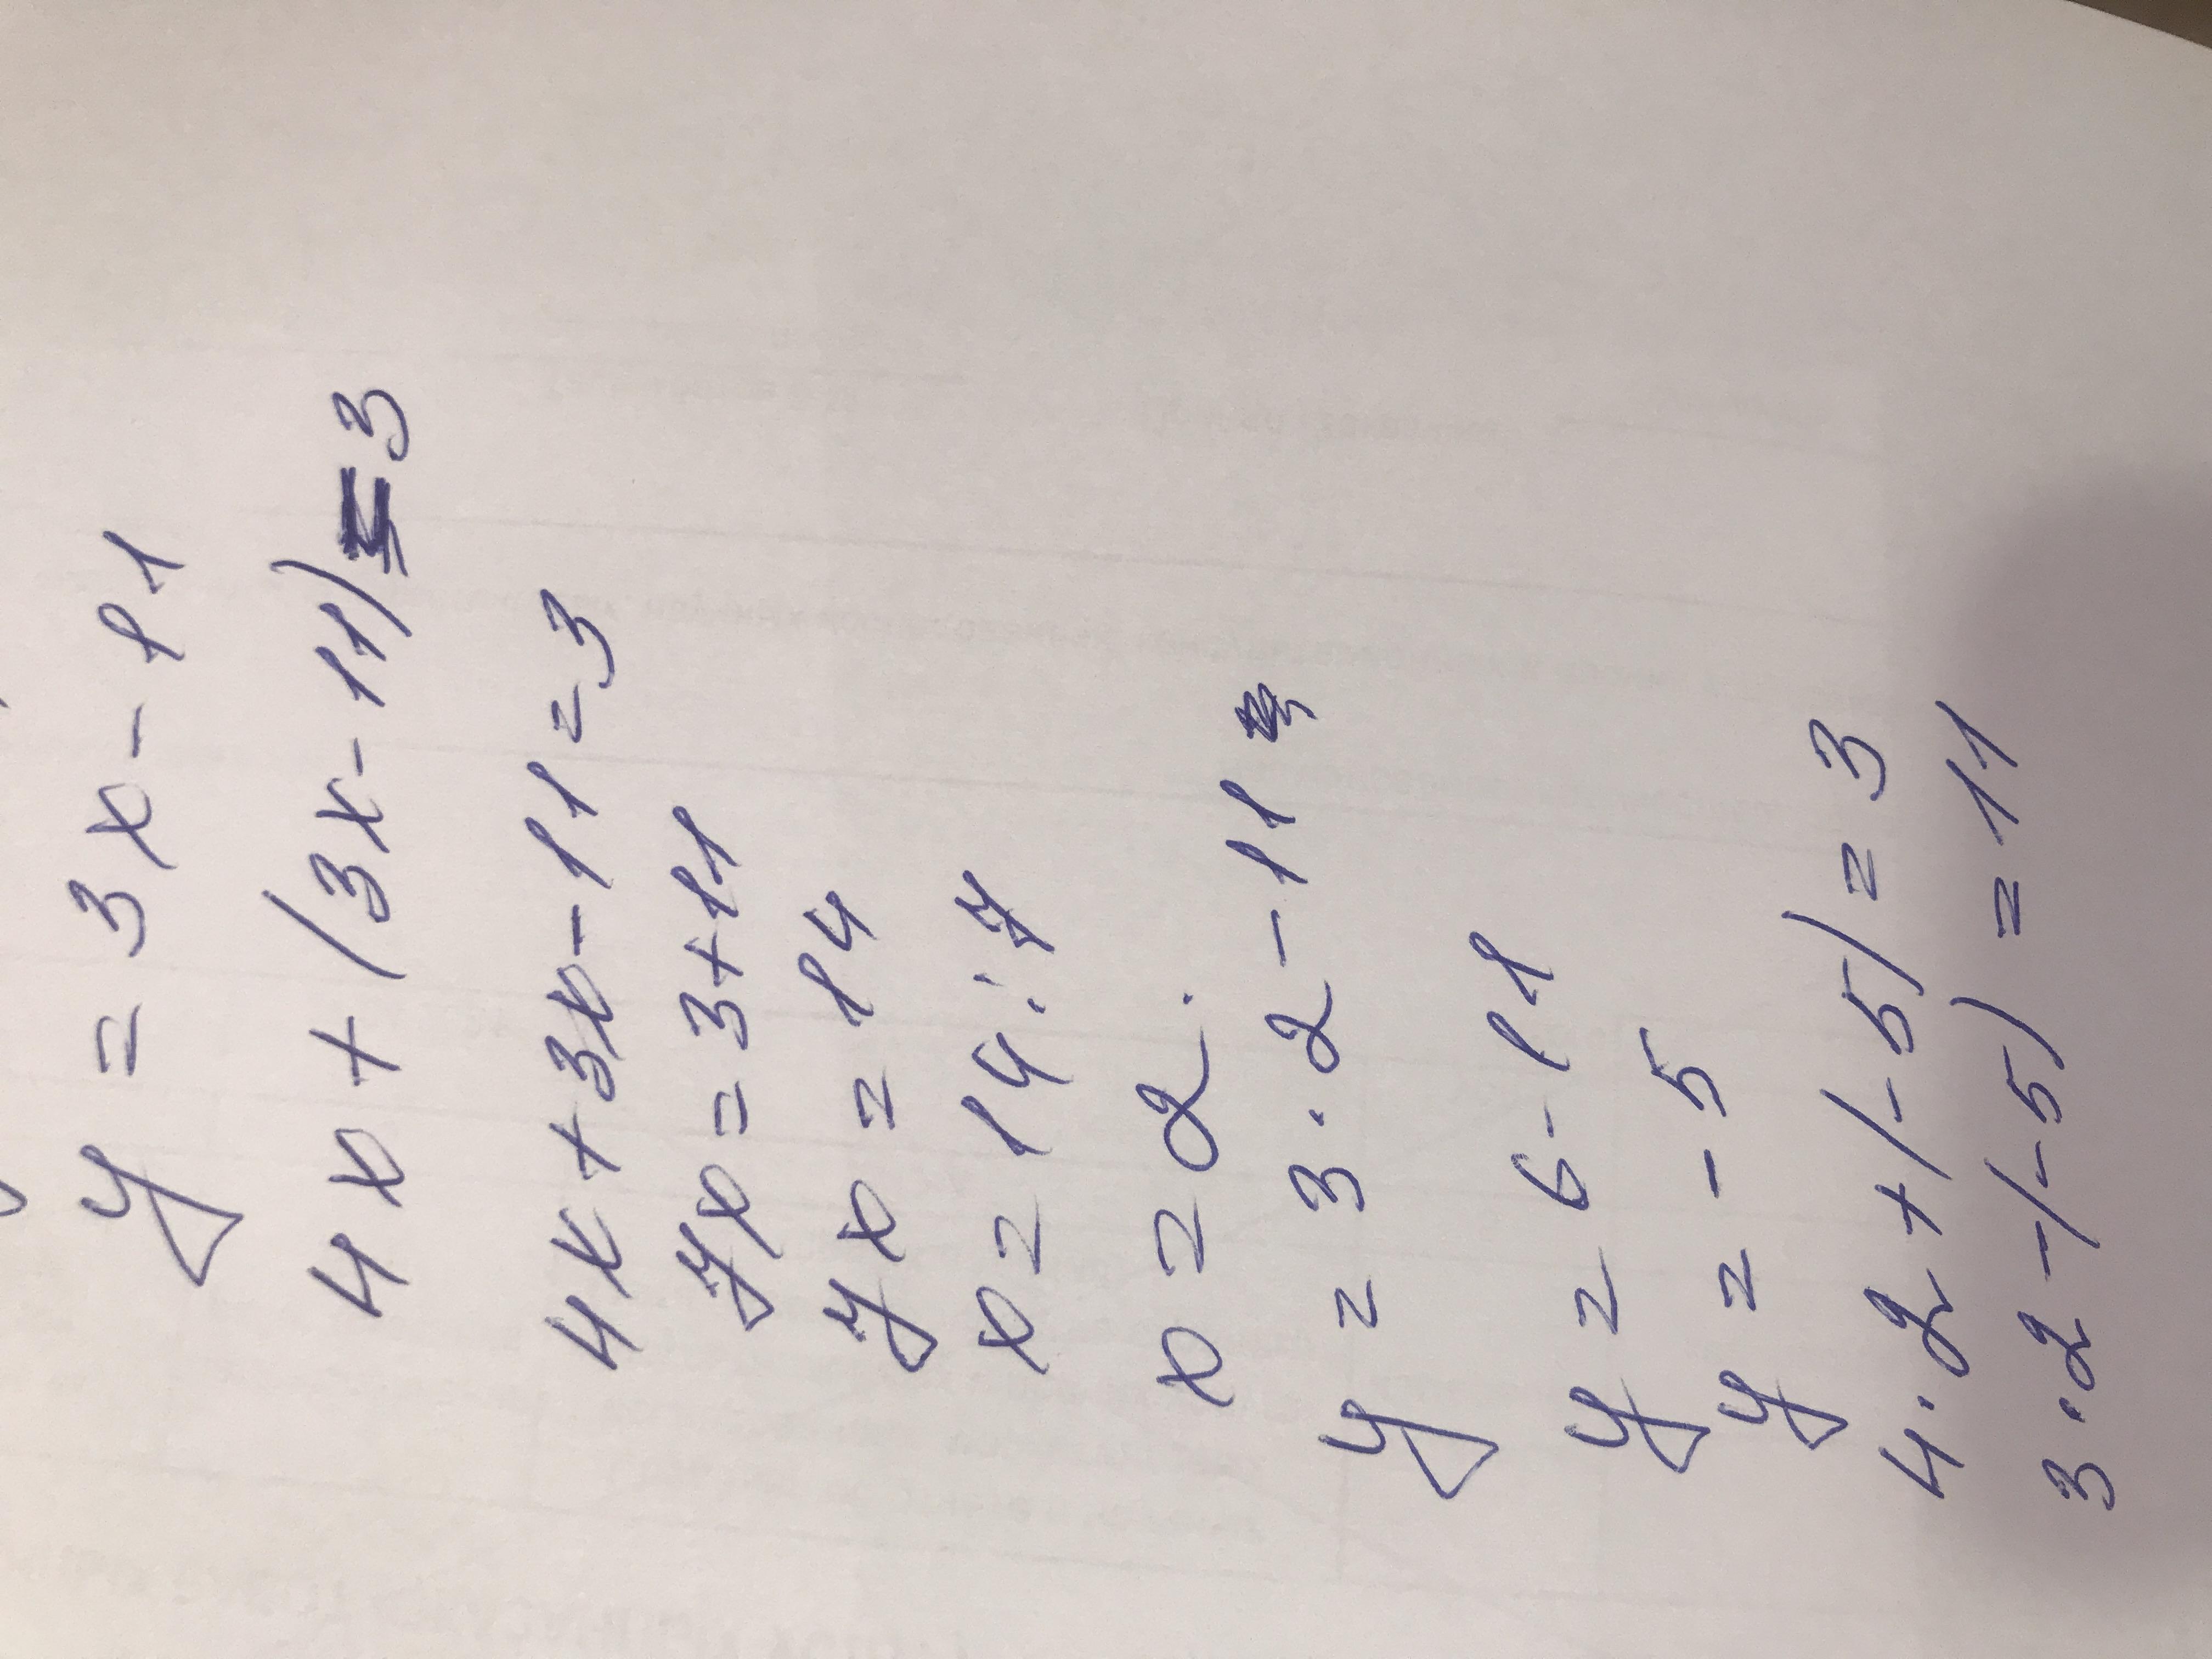 y = 3x - 11
4x + (3x - 11) = 3
4x + 3x - 11 = 3
7x = 3 + 11
7x = 14
x = 14 : 7
x = 2.
y = 3 · 2 - 11
y = 6 - 11
y = - 5
4 · 2 + (- 5) = 3
3 · 2 - (- 5) = 11